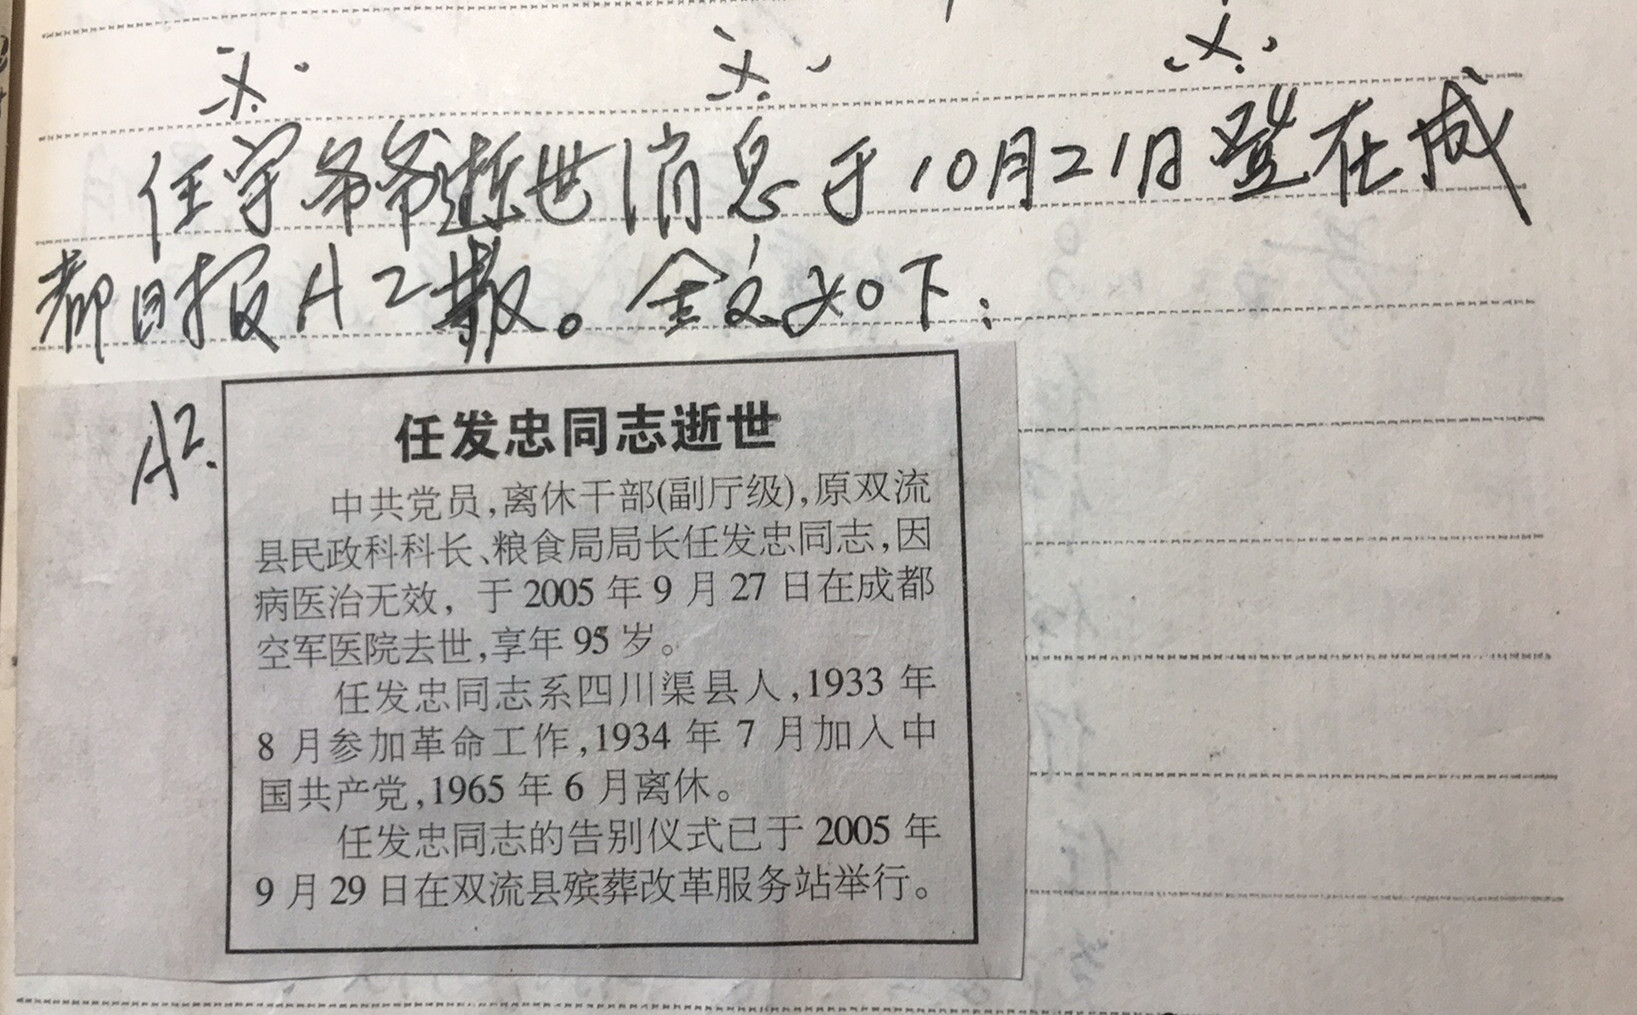 任宇爷爷逝世消息于10月21日登在成
都日报A2版。全文如下：
A2.
任发忠同志逝世
中共党员,离休干部(副厅级),原双流
县民政科科长、粮食局局长任发忠同志,因
病医治无效，于2005年9月27日在成都
空军医院去世,享年95岁。
任发忠同志系四川渠县人,1933年
8月参加革命工作,1934年7月加入中
国共产党,1965年6月离休。
任发忠同志的告别仪式已于2005年
9月29日在双流县殡葬改革服务站举行。